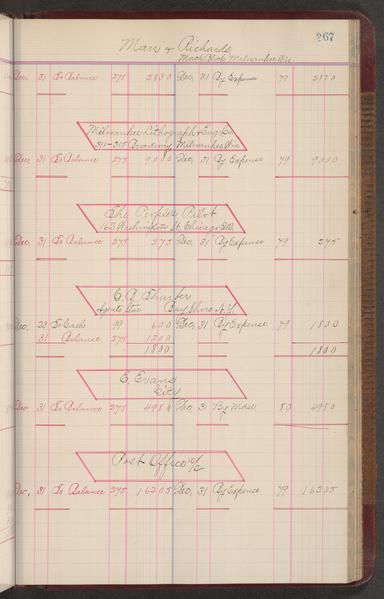 267
Marr & Richards
Mack Block Milwaukee Wis.
Dec, 31 To Balance 275 2850 Dec, 31 By Expense 79 2850
Milwaukee Lithograph & Eng Co
311-315 Broadway Milwaukee Wis
Dec, 31 To Balance 275 9000 Dec, 31 By Expense 79 9000
The Peoples Pilot
163 Washington St. Chicago Ill.
Dec, 31 To Balance 275 275 Dec, 31 By Expense 79 275
C. A. Shurter
Agents Star Bay Shore N.Y.
Dec, 23 To Cash 99 600 Dec, 31 By Expense 79 1800
31 Balance 275 1200
1800 1800
E. Evans
City
Dec, 31 To Balance 275 4950 Dec, 31 By Mdse 80 4950
Post Office a/c
Dec, 31 To Balance 275 16305 Dec, 31 By Expense 79 16305